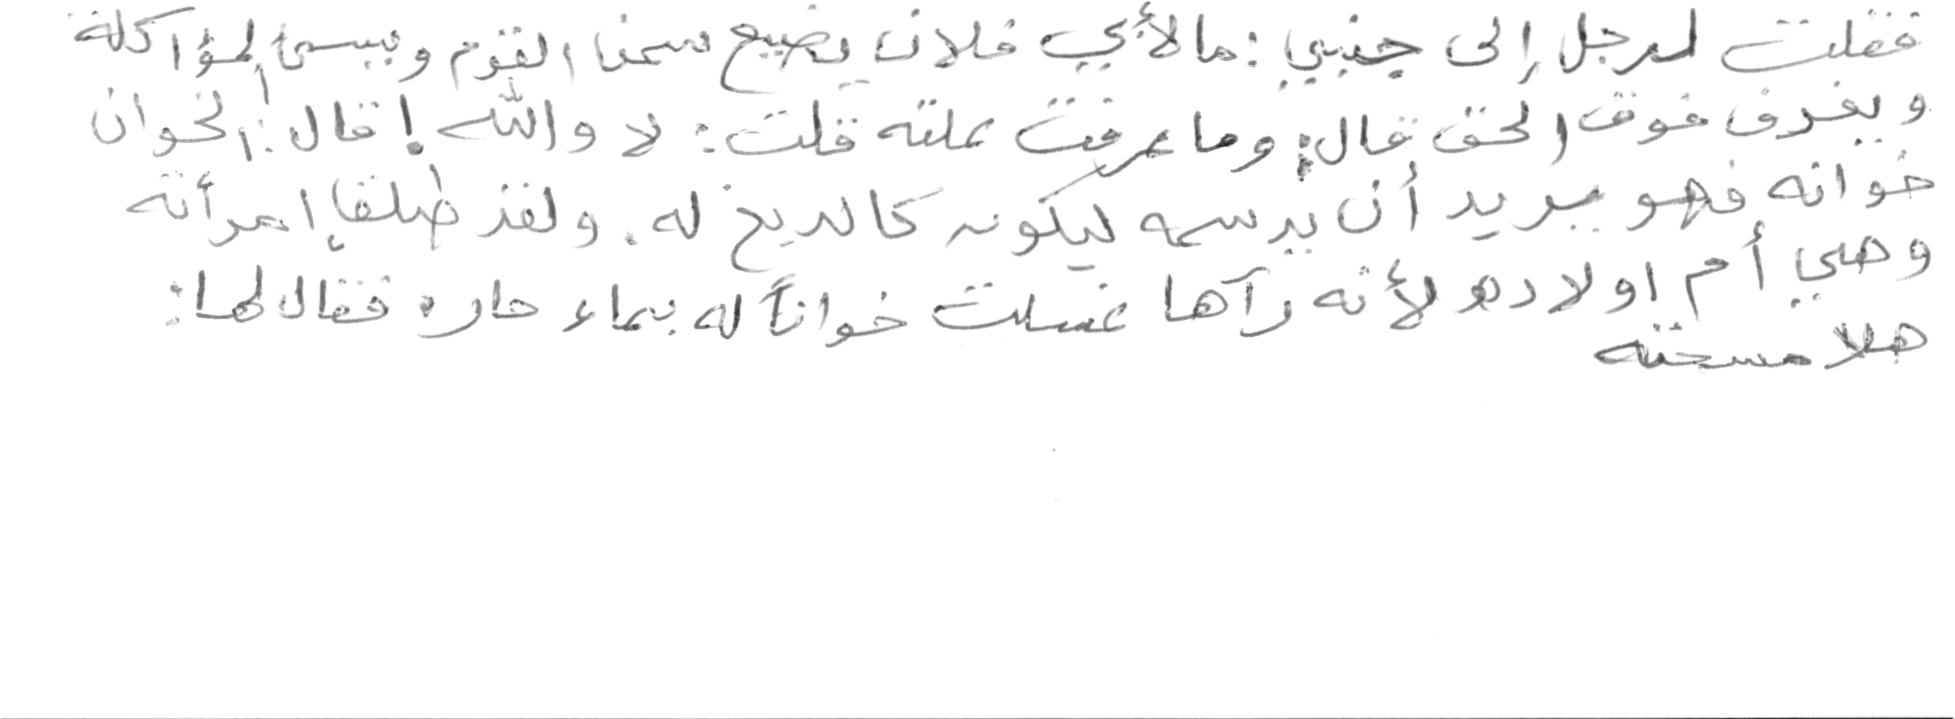 فقلت لرجل إلى جنبي: ما لأبي فلان يضيع سمنا القوم ويسئ المؤاكلة
ويغرف فوق الحق قال: وما عرفت علته قلت: لا والله! قال: الخوان
خوانه فهو يريد أن يدسمه ليكون كالدبغ له. ولقد طلق إمرأته
وهي أم اولاده لأنه رآها غسلت خواناً له بماء حار، فقال لها:
هلا مسحته